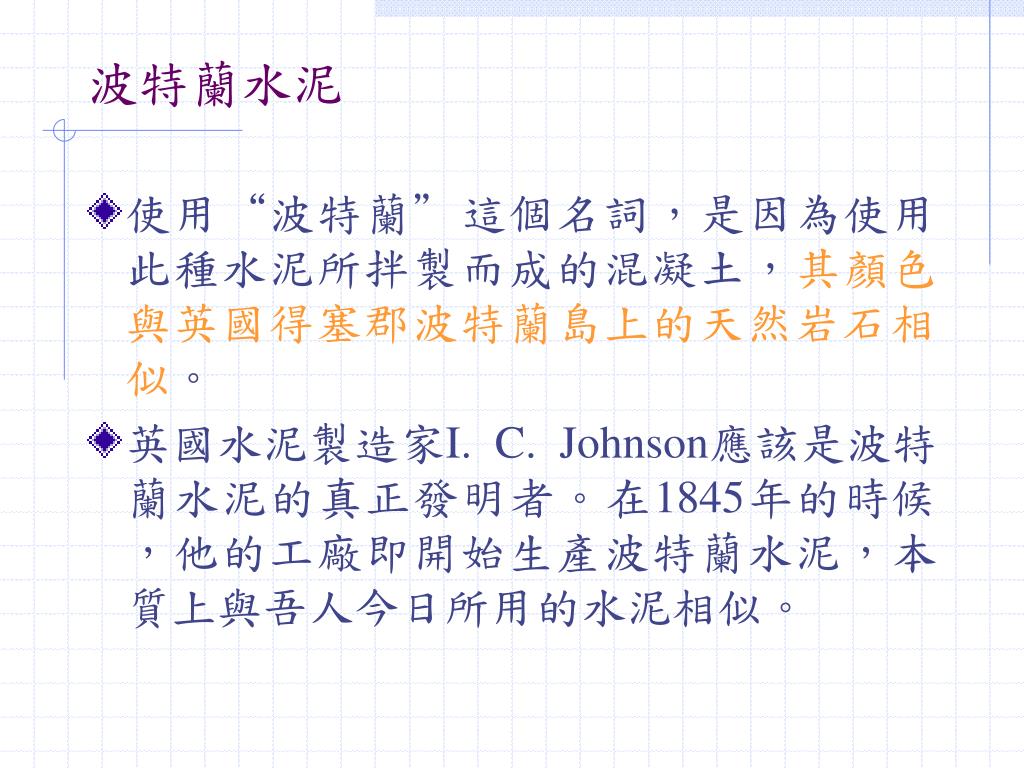 波特蘭水泥
使用“波特蘭”這個名詞，是因為使用
此種水泥所拌製而成的混凝土，其顏色
與英國得塞郡波特蘭島上的天然岩石相
似。
英國水泥製造家I. C. Johnson應該是波特
蘭水泥的真正發明者。在1845年的時候
，他的工廠即開始生產波特蘭水泥，本
質上與吾人今日所用的水泥相似。